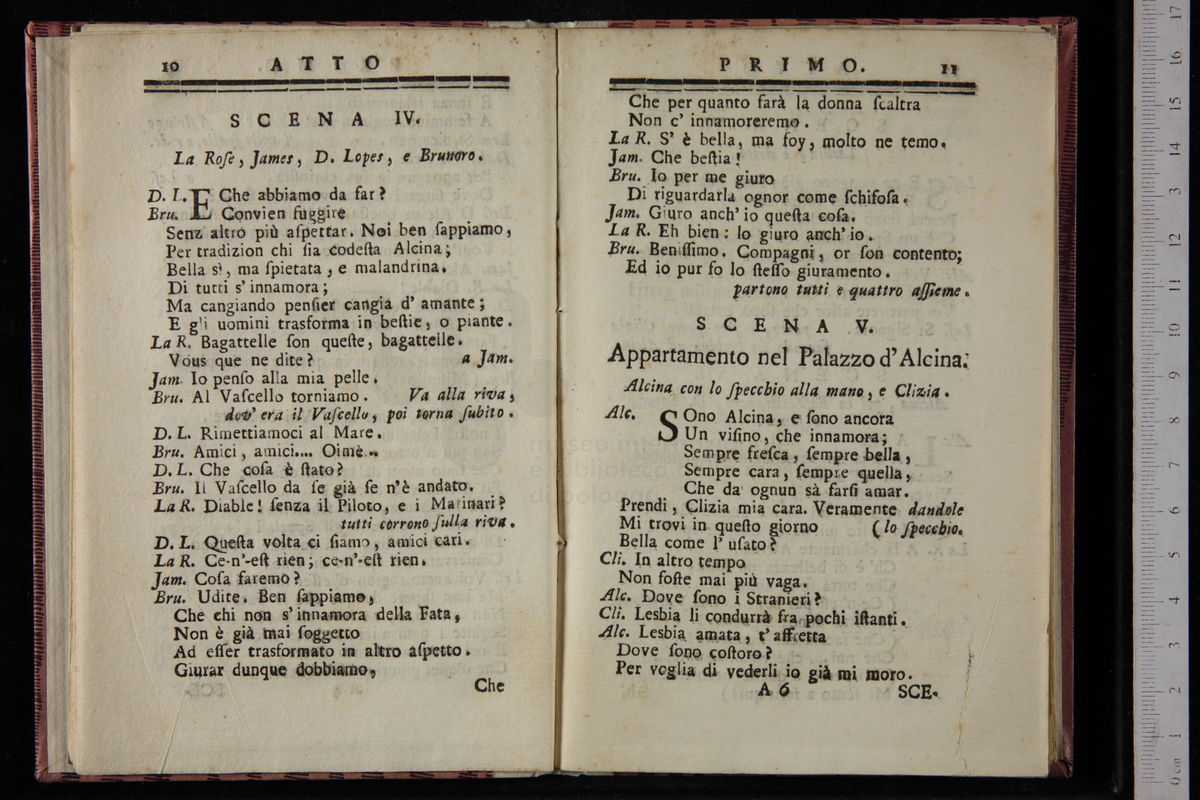 10 ATTO
SCENA IV.
La Roſe, James, D. Lopes, e Brunoro.
D. L. E Che abbiamo da far?
Bru. Convien fuggire
Senz' altro più aſpettar. Noi ben ſappiamo,
Per tradizion chi ſia codeſta Alcina;
Bella sì, ma ſpietata, e malandrina.
Di tutti s'innamora;
Ma cangiando penſier cangia d'amante;
E gli uomini trasforma in beſtie, o piante.
La R. Bagattelle ſon queſte, bagattelle.
Vous que ne dite? a Jam.
Jam. Io penſo alla mia pelle.
Bru. Al Vaſcello torniamo. Va alla riva,
dov' era il Vaſcello, poi torna ſubito.
D. L. Rimettiamoci al Mare.
Bru. Amici, amici.... Oimè..
D. L. Che coſa è ſtato?
Bru. Il Vaſcello da ſe già ſe n'è andato.
La R. Diable! ſenza il Piloto, e i Marinari?
tutti corrono ſulla riva.
D. L. Queſta volta ci ſiamo, amici cari.
La R. Ce-n'-eſt rien; ce-n'-eſt rien.
Jam. Coſa faremo?
Bru. Udite. Ben ſappiamo,
Che chi non s'innamora della Fata,
Non è già mai ſoggetto
Ad eſſer trasformato in altro aſpetto.
Giurar dunque dobbiamo,
Che
PRIMO. 11
Che per quanto farà la donna ſcaltra
Non c' innamoreremo.
La R. S' è bella, ma foy, molto ne temo.
Jam. Che beſtia!
Bru. Io per me giuro
Di riguardarla ognor come ſchifoſa.
Jam. Giuro anch' io queſta coſa.
La R. Eh bien: lo giuro anch' io.
Bru. Beniſſimo. Compagni, or ſon contento;
Ed io pur fo lo ſteſſo giuramento.
partono tutti e quattro aſſieme.
SCENA V.
Appartamento nel Palazzo d'Alcina.
Alcina con lo ſpecchio alla mano, e Clizia.
Alc. SOno Alcina, e ſono ancora
Un viſino, che innamora;
Sempre freſca, ſempre bella,
Sempre cara, ſempre quella,
Che da ognun sà farſi amar.
Prendi, Clizia mia cara. Veramente dandole
Mi trovi in queſto giorno (lo ſpecchio.
Bella come l' uſato?
Cli. In altro tempo
Non foſte mai più vaga.
Alc. Dove ſono i Stranieri?
Cli. Lesbia li condurrà fra pochi iſtanti.
Alc. Lesbia amata, t' affretta
Dove ſono coſtoro?
Per voglia di vederli io già mi moro.
A 6 SCE.